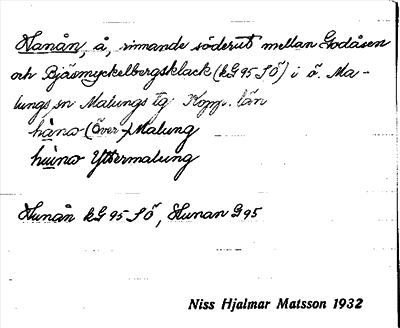 Hanån, å, rinnande söderut mellan Godåsen
och Bjäsmyckelbergsklack (kG 95 SÖ) i ö. Ma-
lungs sn Malungs tg Kopp. län
håna (Över-)Malung
huina Yttermalung
Hunån kG 95 SÖ, Hunan G 95
Niss Hjalmar Matsson 1932